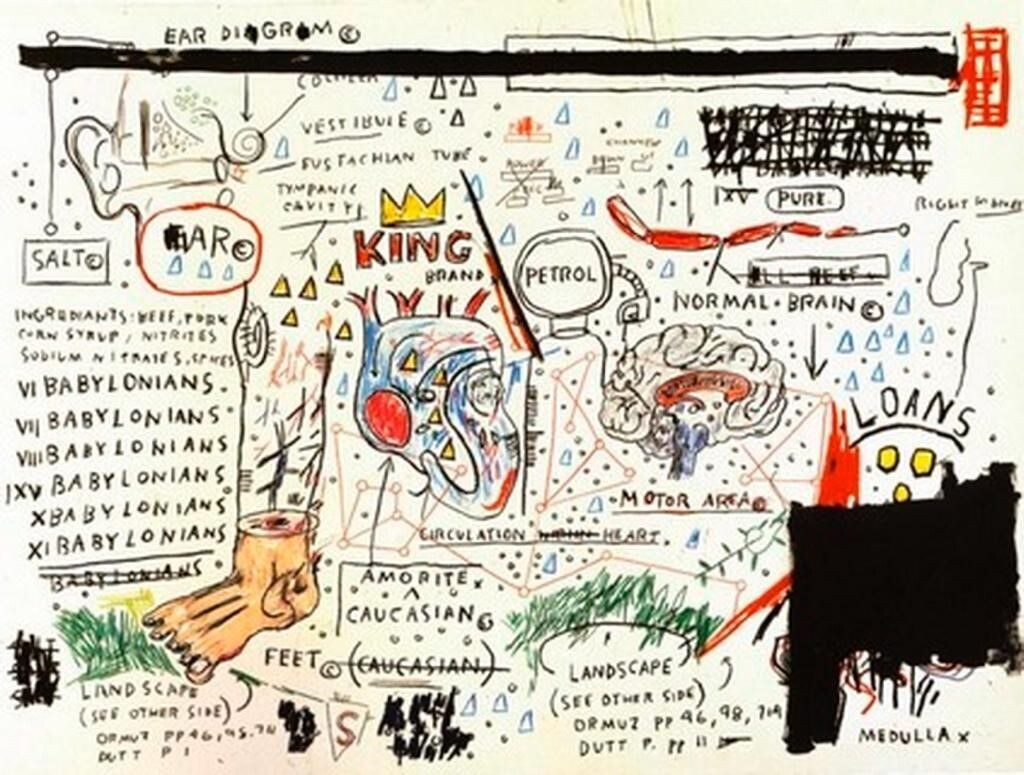 EAR DIAGRAM ©
COCHLEA
VESTIBULE ©
EUSTACHIAN TUBE
TYMPANIC
CAVITY
SALT ©
EAR ©
KING
BRAND
PETROL
IXV PURE.
RIGHT
NORMAL BRAIN ©
INGREDIANTS: BEEF, PORK
CORN SYRUP, NITRITES
SODIUM NITRATES, SPICES
VI BABYLONIANS.
VII BABYLONIANS
VIII BABYLONIANS
IXV BABYLONIANS
X BABYLONIANS
XI BABYLONIANS
BABYLONIANS
LOANS
MOTOR AREA ©
CIRCULATION HEART.
AMORITE x
CAUCASIAN ©
FEET © (CAUCASIAN.)
LANDSCAPE
(SEE OTHER SIDE)
ORMUZ PP 46, 98, 
DUTT P 1
S
LANDSCAPE
(SEE OTHER SIDE)
ORMUZ PP 46, 98, 
DUTT P. PP 11
MEDULLA x